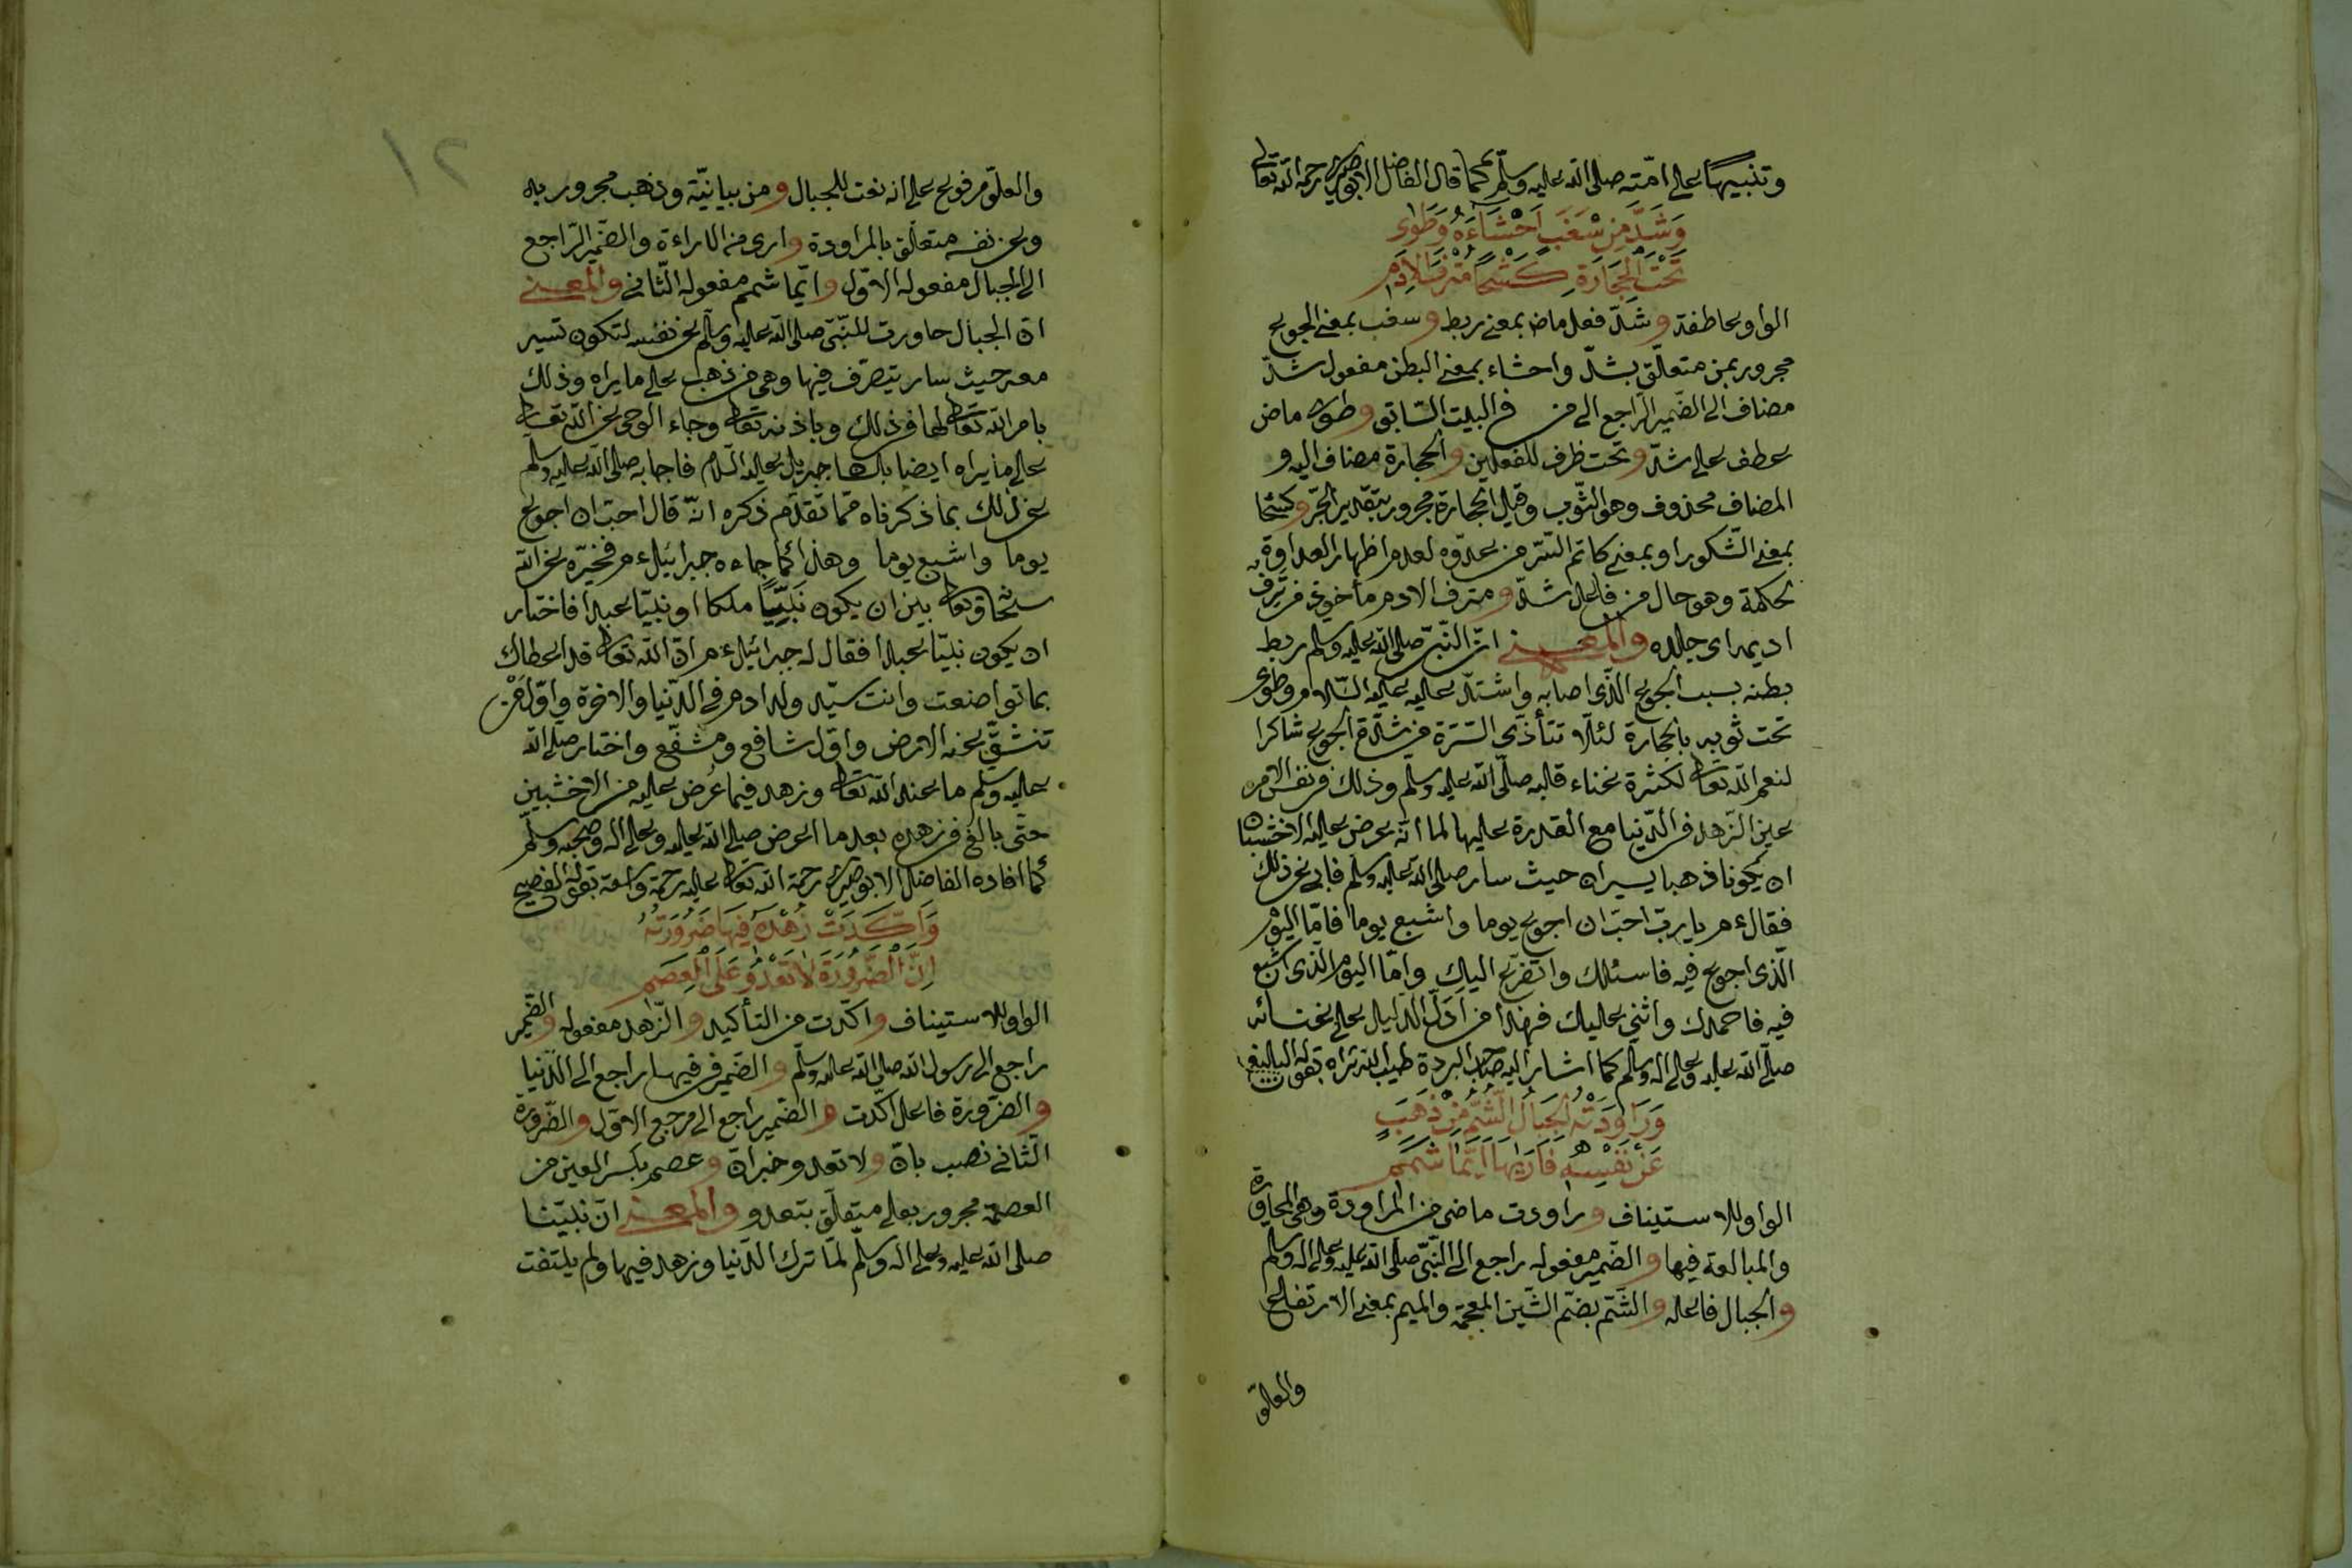 وتنبيها على امّته صلى الله عليه وسلّم كما قال الفاضل الابوصيرى رحمه الله تعالى
وَشَدَّ مِنْ سَغَبٍ اَحْشَاءَهُ وَطَوٰى
تَحْتَ الْحِجَارَةِ كَشْحًا مُتْرَفَ الْاَدَمِ
الواو عاطفة وشدّ فعل ماض بمعنى ربط وسغب بمعنى الجوع
مجرور بمن متعلّق بشدّ واحشاء بمعنى البطن مفعول شدّ
مضاف الى الضّمير الرّاجع الى من فى البيت السّابق وطوى ماض
عطف على شدّ وتحت ظرف للفعلين والحجارة مضاف اليه و
المضاف محذوف وهو الثّوب وقيل الحجارة مجرور بتقدير الجرّ وكشحا
بمعنى الشّكور او بمعنى كاتم السّرّ من عدوّه لعدم اظهار العداوة
لحكمة وهو حال من فاعل شدّ ومترف الادم مأخوذ من ترف
اديمه اى جلده والمعنى انّ النّبىّ صلى الله عليه وسلم ربط
بطنه بسبب الجوع الذّى اصابه واشتدّ عليه عليه السّلام وطوى
تحت ثوبه بالحجارة لئلّا تتأذّى السّرّة من شدّة الجوع شاكرا
لنعم الله تعالى لكثرة غناء قلبه صلّى الله عليه وسلم وذلك فى نفس الامر
عين الزّهد فى الدّنيا مع القدرة عليها لما انّه عرض عليه الاخشبان
ان يكونا ذهبا يسيران حيث سار صلى الله عليه وسلم فابى عن ذلك
فقال ءم يا ربّ احبّ ان اجوع يوما واشبع يوما فامّا اليوم
الّذى اجوع فيه فاسئلك واتضرّع اليك وامّا اليوم الّذى اشبع
فيه فاحمدك واثنى عليك فهذا من ادلّ الدّليل على غنائه
صلّى الله عليه وعلى اله وسلّم كما اشار اليه صاحب البردة طيب الله ثراه بقوله البليغ
وَرَاوَدَتْهُ الْجِبَالُ الشُّمُّ مِنْ ذَهَبٍ
عَنْ نَفْسِهِ فَاَرٰيهَا اَيَّمَا شَمَمِ
الواو للاستيناف وراودت ماضى من المراودة وهى المحاورة
والمبالغة فيها والضّمير مفعوله راجع الى النّبىّ صلى الله عليه وعلى اله وسلم
والجبال فاعله والشّمّ بضمّ الشّين المعجمة والميم بمعنى الارتفاع
والعلوّ
١٢
والعلوّ مرفوع على انه نعت للجبال ومن بيانيّة وذهب مجرور به
وعن نفسه متعلّق بالمراودة وارى من الاراءة والضّمير الرّاجع
الى الجبال مفعوله الاوّل وايّما شمم مفعوله الثّانى والمعنى
انّ الجبال حاورت للنّبىّ صلى الله عليه وسلّم عن نفسه لتكون تسير
معه حيث سار يتصرّف فيها وهى من ذهب على ما يراه وذلك
بامر الله تعالى لها فى ذلك وباذنه تعالى وجاء الوحى عن الله تعالى
على ما يراه ايضا بلّغها جبريل عليه السّلام فاجابه صلى الله عليه وسلم
عن ذلك بما ذكرناه ممّا تقدّم ذكره انّه قال احبّ ان اجوع
يوما واشبع يوما وهذا كما جاءه جبرائيل ءم فخيّره عن الله
سبحانه وتعالى بين ان يكون نَبِيًّا ملكا او نبيّا عبدا فاختار
ان يكون نبيّا عبدا فقال له جبرائيل ءم انّ الله تعالى قد اعطاك
بما تواضعت وانت سيّد ولد ادم فى الدّنيا والاخرة واوّل مَنْ
تنشقّ عنه الارض واوّل شافع ومشفّع واختار صلى الله
عليه وسلم ما عند الله تعالى وزهد فيما عُرض عليه من الاخشبين
حتّى بالغ فى زهده بعد ما اعرض صلى الله عليه وعلى اله وصحبه وسلّم
كما افاده الفاضل الابوصيرى رحمة الله تعالى عليه رحمة واسعة بقوله الفصيح
وَاَكَّدَتْ زُهْدَهُ فِيهَا ضَرُورَتُهُ
اِنَّ الضَّرُورَةَ لَا تَعْدُو عَلَى الْعِصَمِ
الواو للاستيناف واكّدت من التأكيد والزّهد مفعوله والضّمير
راجع الى رسول الله صلّى الله عليه وسلّم والضّمير فى فيها راجع الى الدّنيا
والضّرورة فاعل اكّدت والضّمير راجع الى مرجع الاوّل والضّرورة
الثّانى نصب بانّ ولا تعدو خبر انّ وعصم بكسر العين من
العصمة مجرور بعلى متعلّق بتعدو والمعنى انّ نبيّنا
صلى الله عليه وعلى اله وسلّم لمّا ترك الدّنيا وزهد فيها ولم يلتفت